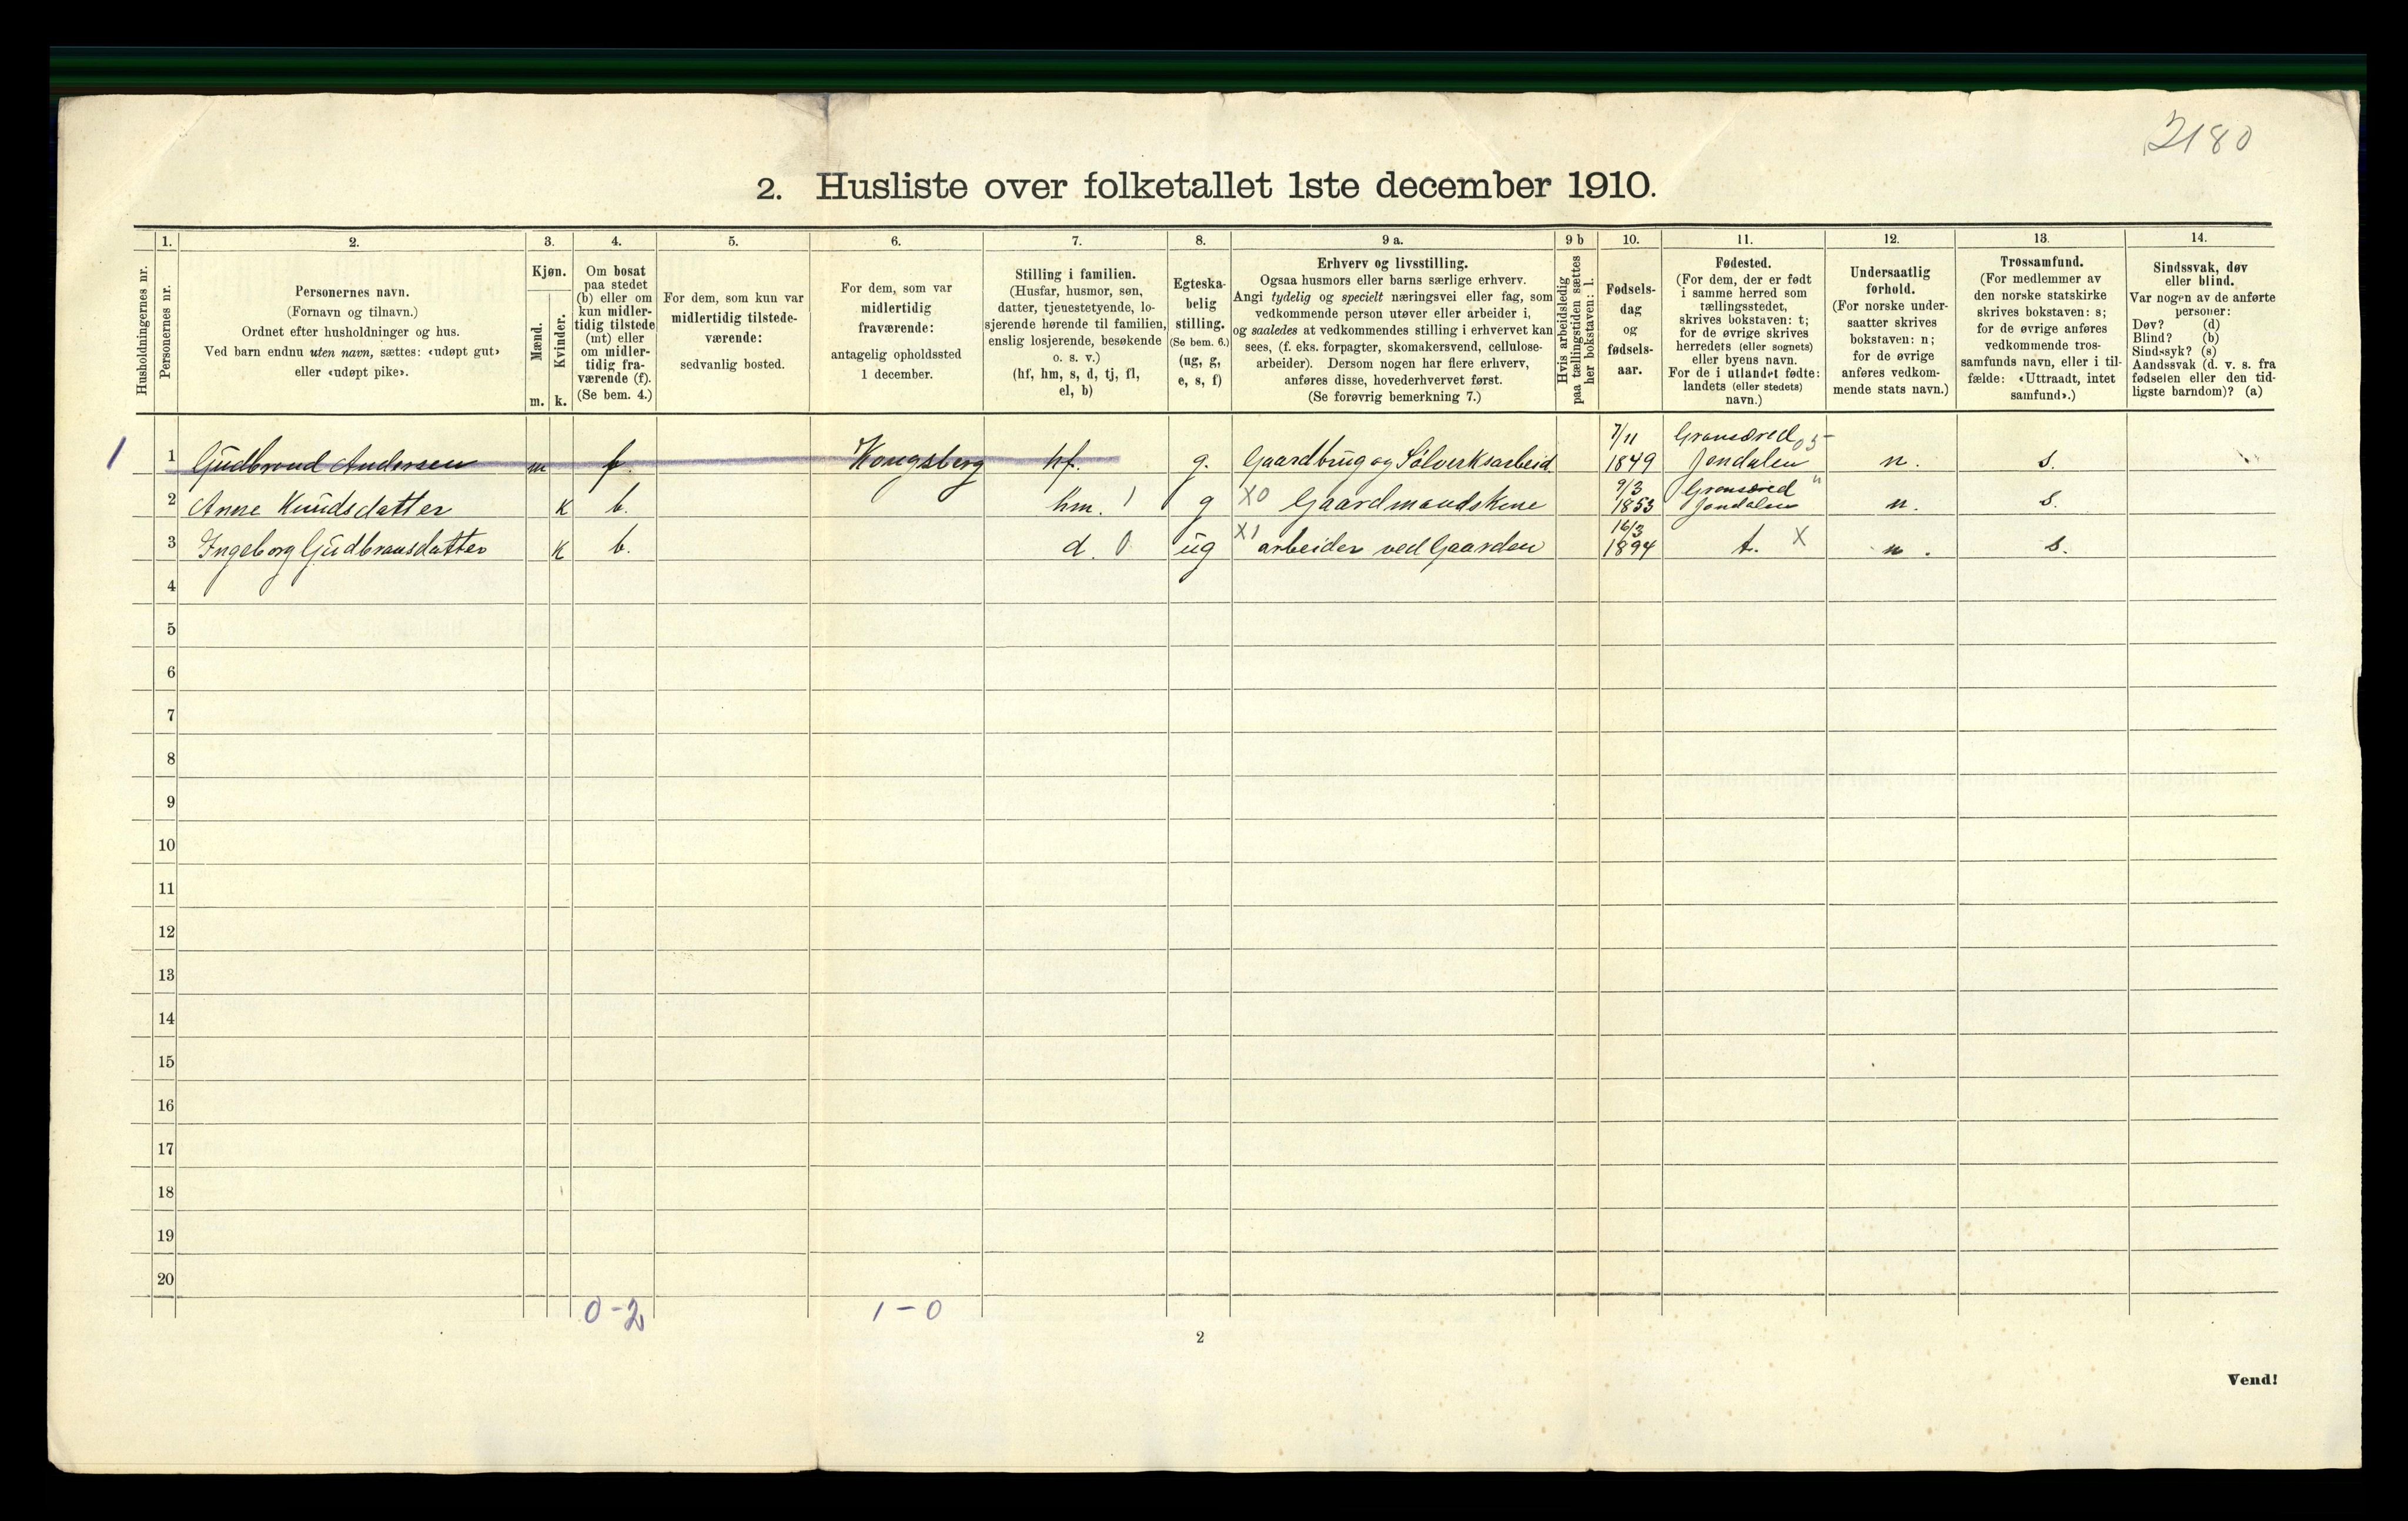 2180
2. Husliste over folketallet 1ste december 1910.
Husholdningernes nr.
1.
Personernes nr.
2.
Personernes navn.
(Fornavn og tilnavn.)
Ordnet efter husholdninger og hus.
Ved barn endnu uten navn, sættes: «udøpt gut»
eller «udøpt pike».
3.
Kjøn.
Mænd.
Kvinder.
m. k.
4.
Om bosat
paa stedet
(b) eller om
kun midler-
tidig tilstede
(mt) eller
om midler-
tidig fra-
værende (f).
(Se bem. 4.)
5.
For dem, som kun var
midlertidig tilstede-
værende:
sedvanlig bosted.
6.
For dem, som var
midlertidig
fraværende:
antagelig opholdssted
1 december.
7.
Stilling i familien.
(Husfar, husmor, søn,
datter, tjenestetyende, lo-
sjerende hørende til familien,
enslig losjerende, besøkende
o. s. v.)
(hf, hm, s, d, tj, fl,
el, b)
8.
Egteska-
belig
stilling.
(Se bem. 6.)
(ug, g,
e, s, f)
9 a.
Erhverv og livsstilling.
Ogsaa husmors eller barns særlige erhverv.
Angi tydelig og specielt næringsvei eller fag, som
vedkommende person utøver eller arbeider i,
og saaledes at vedkommendes stilling i erhvervet kan
sees, (f. eks. forpagter, skomakersvend, cellulose-
arbeider). Dersom nogen har flere erhverv,
anføres disse, hovederhvervet først.
(Se forøvrig bemerkning 7.)
9 b
Hvis arbeidsledig
paa tællingstiden sættes
her bokstaven: l.
10.
Fødsels-
dag
og
fødsels-
aar.
11.
Fødested.
(For dem, der er født
i samme herred som
tællingsstedet,
skrives bokstaven: t;
for de øvrige skrives
herredets (eller sognets)
eller byens navn.
For de i utlandet fødte:
landets (eller stedets)
navn.)
12.
Undersaatlig
forhold.
(For norske under-
saatter skrives
bokstaven: n;
for de øvrige
anføres vedkom-
mende stats navn.)
13.
Trossamfund.
(For medlemmer av
den norske statskirke
skrives bokstaven: s;
for de øvrige anføres
vedkommende tros-
samfunds navn, eller i til-
fælde: «Uttraadt, intet
samfund».)
14.
Sindssvak, døv
eller blind.
Var nogen av de anførte
personer:
Døv? (d)
Blind? (b)
Sindssyk? (s)
Aandssvak (d. v. s. fra
fødselen eller den tid-
ligste barndom)? (a)
1 1 Gudbrand Andersen m f. Kongsberg hf. g. Gaardbrug og Sølverksarbeid 7/11 1849 Gransered Jondalen 05 n. s.
2 Anne Knudsdatter k b. hm. 1 g X0 Gaardmandskone 9/3 1853 Gransered Jondalen " n. s.
3 Ingeborg Gudbransdatter k b. d. 0 ug X1 arbeider ved Gaarden 16/3 1894 t. X n. s.
4
5
6
7
8
9
10
11
12
13
14
15
16
17
18
19
20
0-2 1-0
2
Vend!